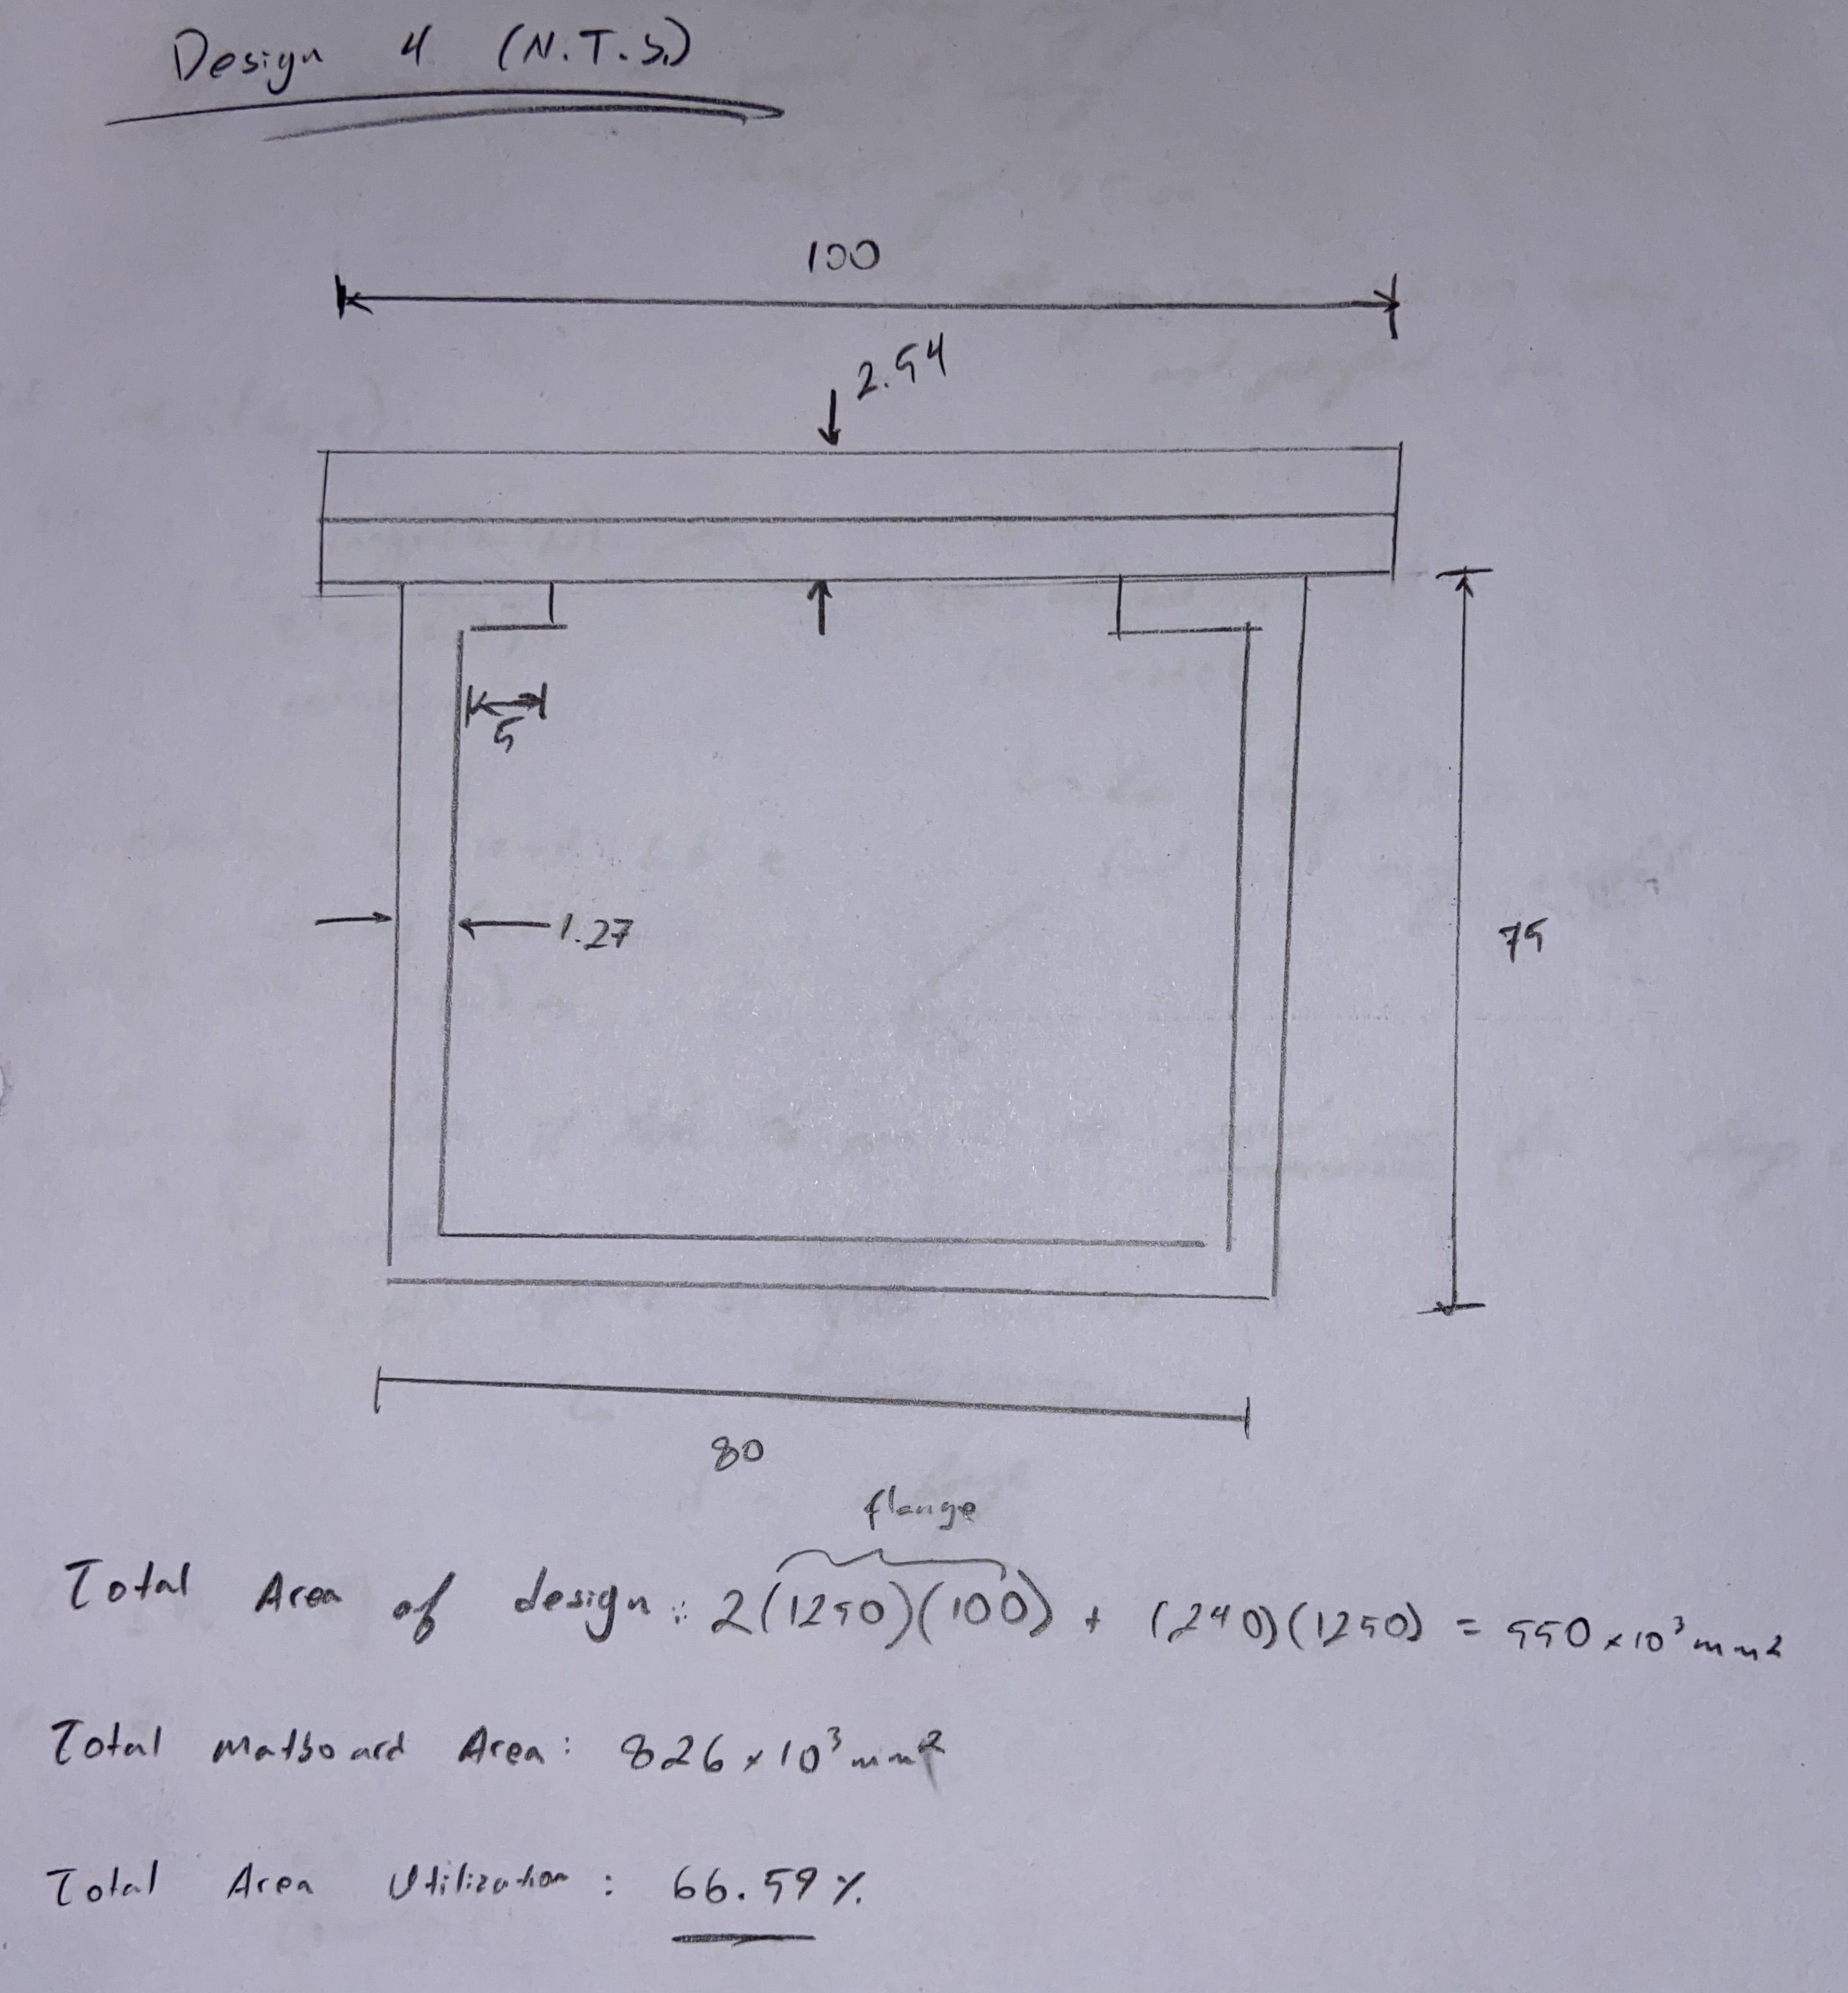 Design 4 (N.T.S.)
100
2.54
5
1.27
75
80
flange
Total Area of design: 2(1250)(100) + (240)(1250) = 550 x 10³ mm²
Total matboard Area: 826 x 10³ mm²
Total Area Utilization: 66.59%